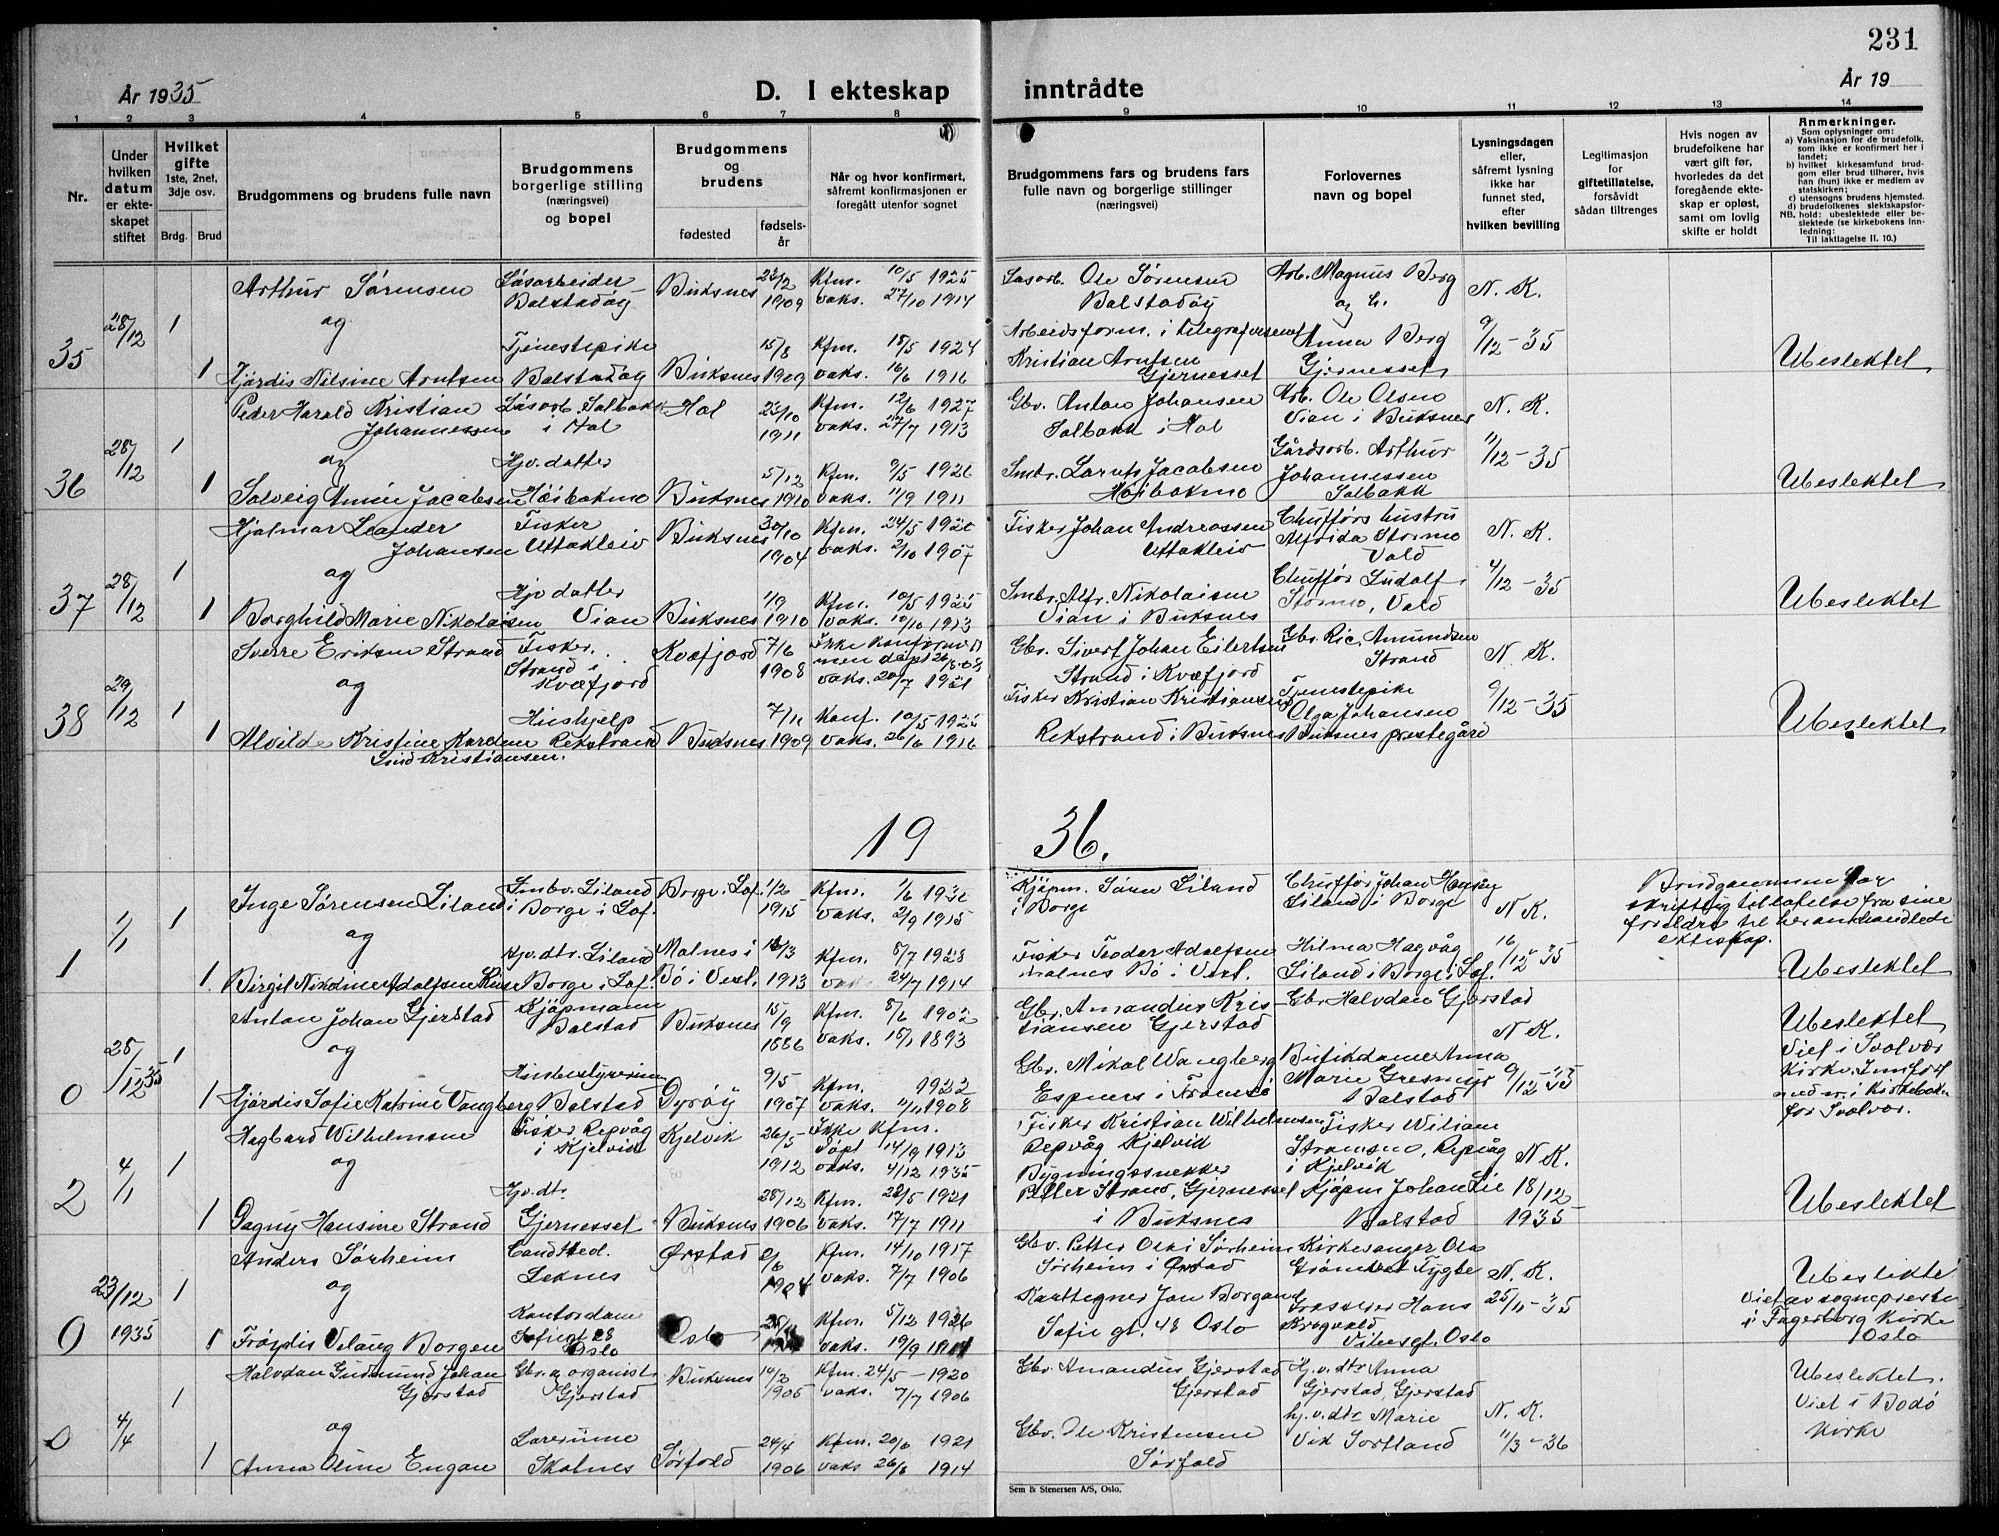 231
År 1935
D. I ekteskap inntrådte
År 19
1 2 3 4 5 6 7 8 9 10 11 12 13 14
Nr.
Under hvilken datum er ekteskapet stiftet
Hvilket gifte 1ste, 2net, 3dje osv.
Brdg. Brud
Brudgommens og brudens fulle navn
Brudgommens borgerlige stilling (næringsvei) og bopel
Brudgommens og brudens
fødested
fødselsår
Når og hvor konfirmert, såfremt konfirmasjonen er foregått utenfor sognet
Brudgommens fars og brudens fars fulle navn og borgerlige stillinger (næringsvei)
Forlovernes navn og bopel
Lysningsdagen eller, såfremt lysning ikke har funnet sted, efter hvilken bevilling
Legitimasjon for giftetillatelse, forsåvidt sådan tiltrenges
Hvis nogen av brudefolkene har vært gift før, hvorledes da det foregående ekteskap er opløst, samt om lovlig skifte er holdt
Anmerkninger.
Som oplysninger om:
a) Vaksinasjon for de brudefolk, som ikke er konfirmert her i landet;
b) hvilket kirkesamfund brudgom eller brud tilhører, hvis han (hun) ikke er medlem av statskirken;
c) utensogns brudens hjemsted.
d) brudefolkenes slektskapsforhold: ubeslektede eller beslektede (se kirkebokens innledning:
NB.
Til iakttagelse II. 10.)
35 28/12 1 Arthur Sørensen Balstadøy Buksnes 23/2 1909 Kfm. 10/5 1925 vaks. 27/10 1914 Ole Sørensen Balstadøy Arb. Magnus Berg og h. N. K.
og
1 Hjørdis Nilsine Arntsen Tjenestepike Balstadøy Buksnes 15/8 1909 Kfm. 15/5 1924 vaks. 16/6 1916 Arbeidsform. i telegrafvesenet Kristian Arntsen Gjernesset Anna Berg Gjernesset 9/12-35 Ubeslektet
36 28/12 1 Peder Harald Kristian Johannessen Solbakk i Hol Hol 23/10 1911 Kfm. 12/6 1927 vaks. 27/7 1913 Gbr. Anton Johansen Solbakk i Hol Arb. Ole Olsen Vian i Buksnes N. K.
og
1 Solveig Jacobsen Hjv. datter Høibakmo Buksnes 5/12 1910 Kfm. 9/5 1926 vaks. 11/9 1911 Smbr. Jacobsen Høibakmo Gårdsarb. Arthur Johannessen Solbakk 11/12-35 Ubeslektet
37 28/12 1 Hjalmar Leander Johansen Fisker Uttakleiv Buksnes 30/10 1904 Kfm. 24/5 1920 vaks. 2/10 1907 Fisker Johan Andreassen Uttakleiv Chufførs hustru Alfrida Stormo Vold N. K.
og
1 Borghild Marie Nikolaisen Hjv datter Vian Buksnes 1/9 1910 Kfm. 10/5 1925 vaks. 10/10 1913 Smbr. Alfr. Nikolaisen Vian i Buksnes Chuffør Ludolf Stormo, Vold 4/12-35 Ubeslektet
38 29/12 1 Sverre Eriksen Strand Fisker, Strand i Kvæfjord Kvæfjord 7/6 1908 Ikke konfirmert men døpt vaks. 20/7 1921 Gbr. Sivert Johan Eilertsen Strand i Kvæfjord Gbr. Ric. Amundsen Strand N. K.
og
1 Alvilde Kristine Kardine Lind Kristiansen. Hushjelp Rekstrand Buksnes 7/11 1909 Konf. 10/5 1925 vaks. 26/6 1916 Fisker Kristian Kristiansen Rekstrand i Buksnes Tjenestepike Olga Johansen Buksnes prestegård 9/12-35 Ubeslektet
19 36.
1 1/1 1 Inge Sørensen Liland Smbr. Liland i Borge i Lof. Borge i Lof. 1/2 1915 Kfm. vaks. 2/9 1915 Kjøpm. Søren Liland i Borge Chuffør Johan Liland i Borge N K. Brudgommen har skriftlig tillatelse fra sine foreldre til heromhandlede ekteskap.
og
1 Hjv. dtr. Liland Borge i Lof. Malnes i Bø i Vest. 1913 Kfm. 8/7 1928 24/7 1914 Fisker Teodor Adolfsen Malnes Bø i Vest. Hilma Hagvåg Liland i Borge i Lof. 16/12 35 Ubeslektet
0 28/12 35 1 Anton Johan Gjerstad Kjøpmann Balstad Buksnes 15/9 1886 Kfm. 1902 vaks. 1893 Gbr. Amandus Kristiansen Gjerstad Gbr Halvdan Gjerstad N K. Ubeslektet
og
1 Hjørdis Sofie Katrine Vangberg Husbestyrerinne Balstad Dyrøy 9/5 1907 Kfm. 1922 vaks. 1908 Gbr. Mikal Wangberg Espnes i Tromsø Butikdame Anna Marie Balstad 9/12-35 Viet i Svolvær Kirke. Innført med nr. i Kirkeboken for Svolvær.
2 4/1 1 Hagbard Wilhelmsen Fisker Repvåg i Kjelvik Kjelvik 26/5 1912 Ikke kfm. Døpt 14/9 1913 vaks. 4/12 1935 Fisker Kristian Wilhelmsen Repvåg Kjelvik Fisker Wiliam Repvåg i Kjelvik N K.
og
1 Dagny Hansine Strand Hjv. dt. Gjernesset Buksnes 28/12 1906 Kfm. 22/5 1921 vaks. 17/7 1911 Bygningssnekker Petter Strand, Gjernesset i Buksnes Kjøpm Johan Lie Balstad 18/12 1935 Ubeslektet
0 23/12 1935 1 Anders Sørheim Cand Med. Leknes Ørstad 1904 Kfm. 14/10 1917 vaks. 7/7 1906 Gbr. Petter Sørheim Sørheim i Ørstad Kirkesanger N. K. Ubeslekte
og
1 Frøydis Borgen Kontordame Sofiegt 28 Oslo Oslo Kfm. 5/12 1926 vaks. 19/9 Karttegner Jon Borgen Sofie gt. 48 Oslo Hans Krogvold Oslo 25/11-35 Viet av sogneprest i Fagerborg Kirke Oslo
0 4/4 1 Halvdan Gudmund Johan Gjerstad Gbr. og organist Gjerstad Buksnes 14/2 1905 Kfm. 24/5-1920 vaks. 7/7 1906 Gbr. Amandus Gjerstad Gjerstad Hj. v. dtr Anna Gjerstad, Gjerstad N. K. Ubeslektet.
og
1 Anna Oline Engan Lærerinne Skolnes Sørfold 24/4 1906 Kfm. 20/6 1921 vaks 26/6 1914 Gbr. Ole Kristensen Sørfold hj. v. dtr Marie Vik Sortland 11/3-36 Viet i Bodø Kirke
Sem & Stenersen A/S, Oslo.